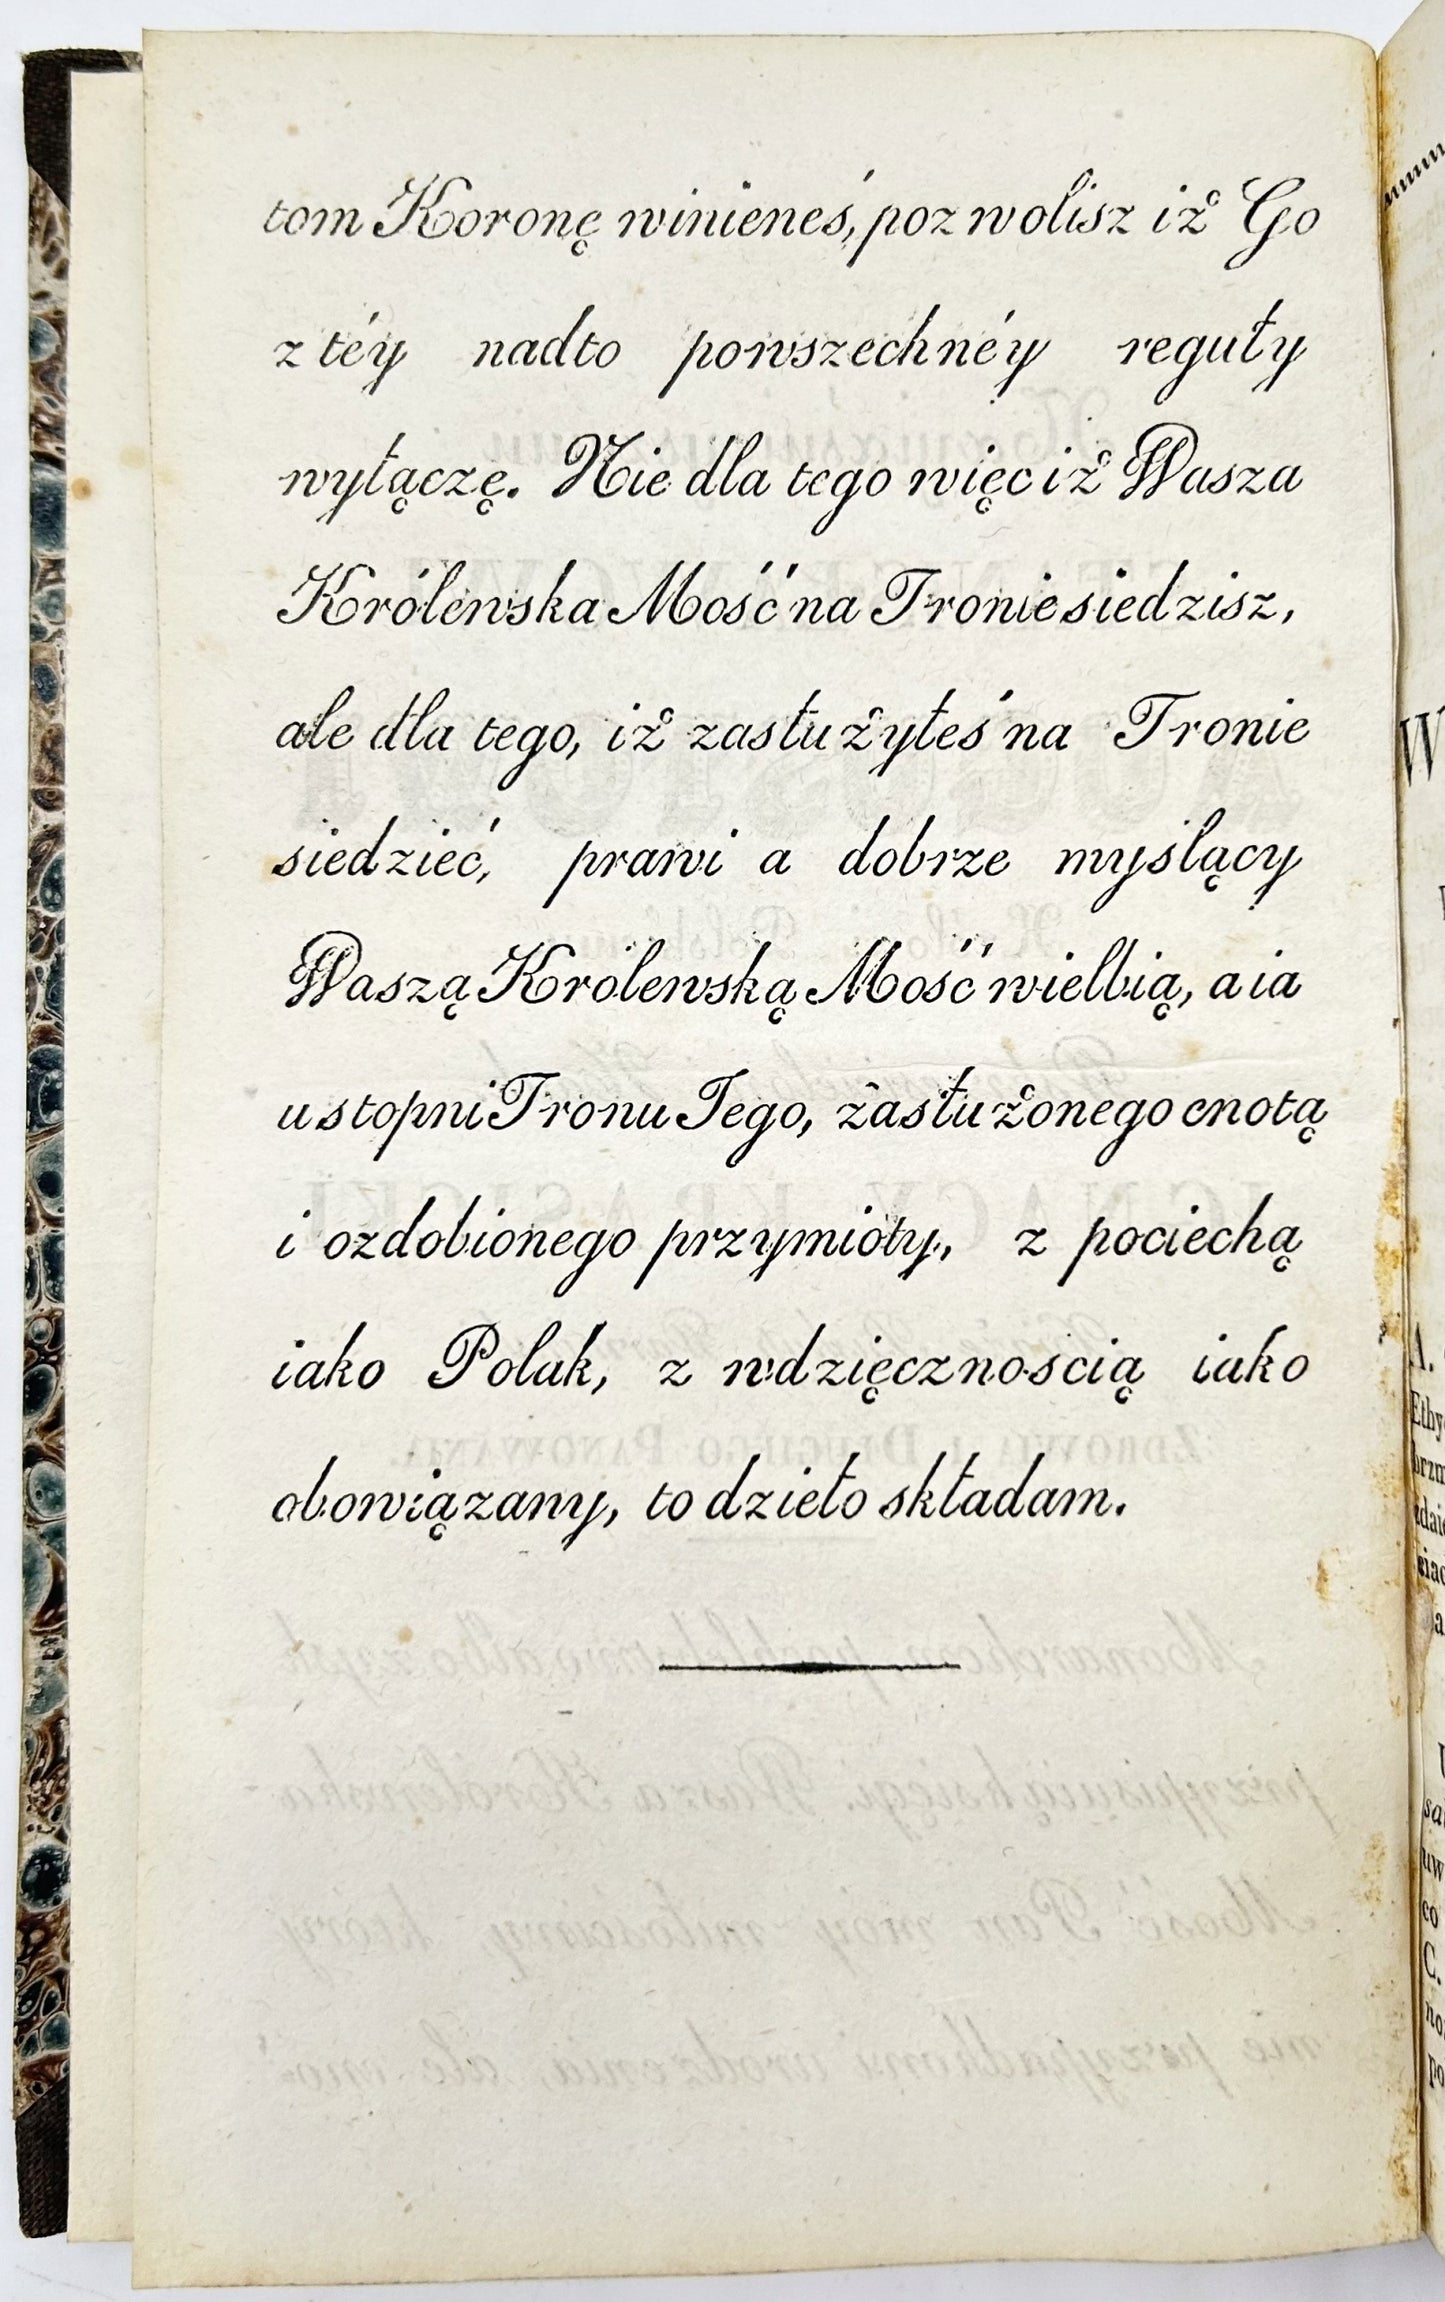 tom Koronę winieneś, pozwolisz iż Go
z téy nadto powszechnéy reguły
wyłączę. Nie dla tego więc iż Wasza
Królewska Mość na Tronie siedzisz,
ale dla tego, iż zasłużyłeś na Tronie
siedzieć, prawi a dobrze myślący
Waszą Królewską Mość wielbią, a ia
u stopni Tronu Jego, zasłużonego cnotą
i ozdobionego przymioty, z pociechą
iako Polak, z wdzięcznością iako
obowiązany, to dzieło składam.